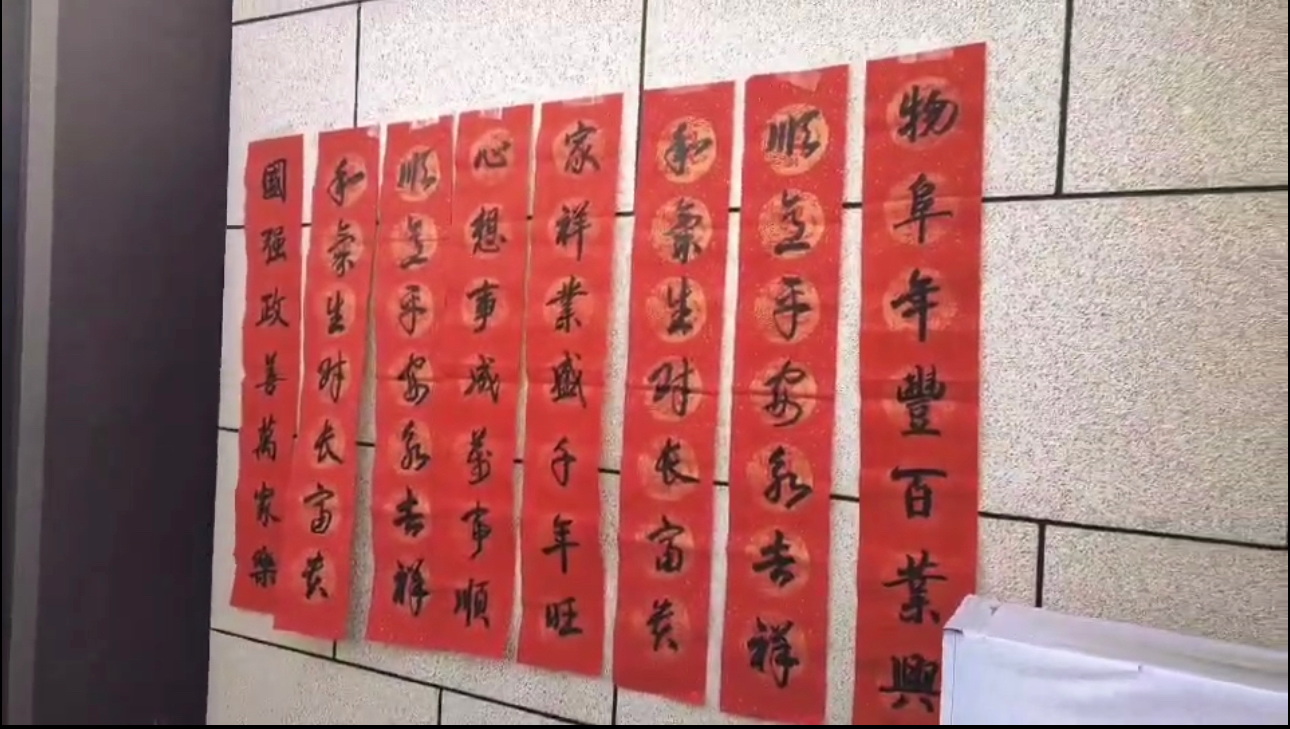 物阜年豐百業興
順意平安永吉祥
和氣生財长富貴
家祥業盛千年旺
心想事成萬事順
順意平安永吉祥
和氣生財长富貴
國强政善萬家樂